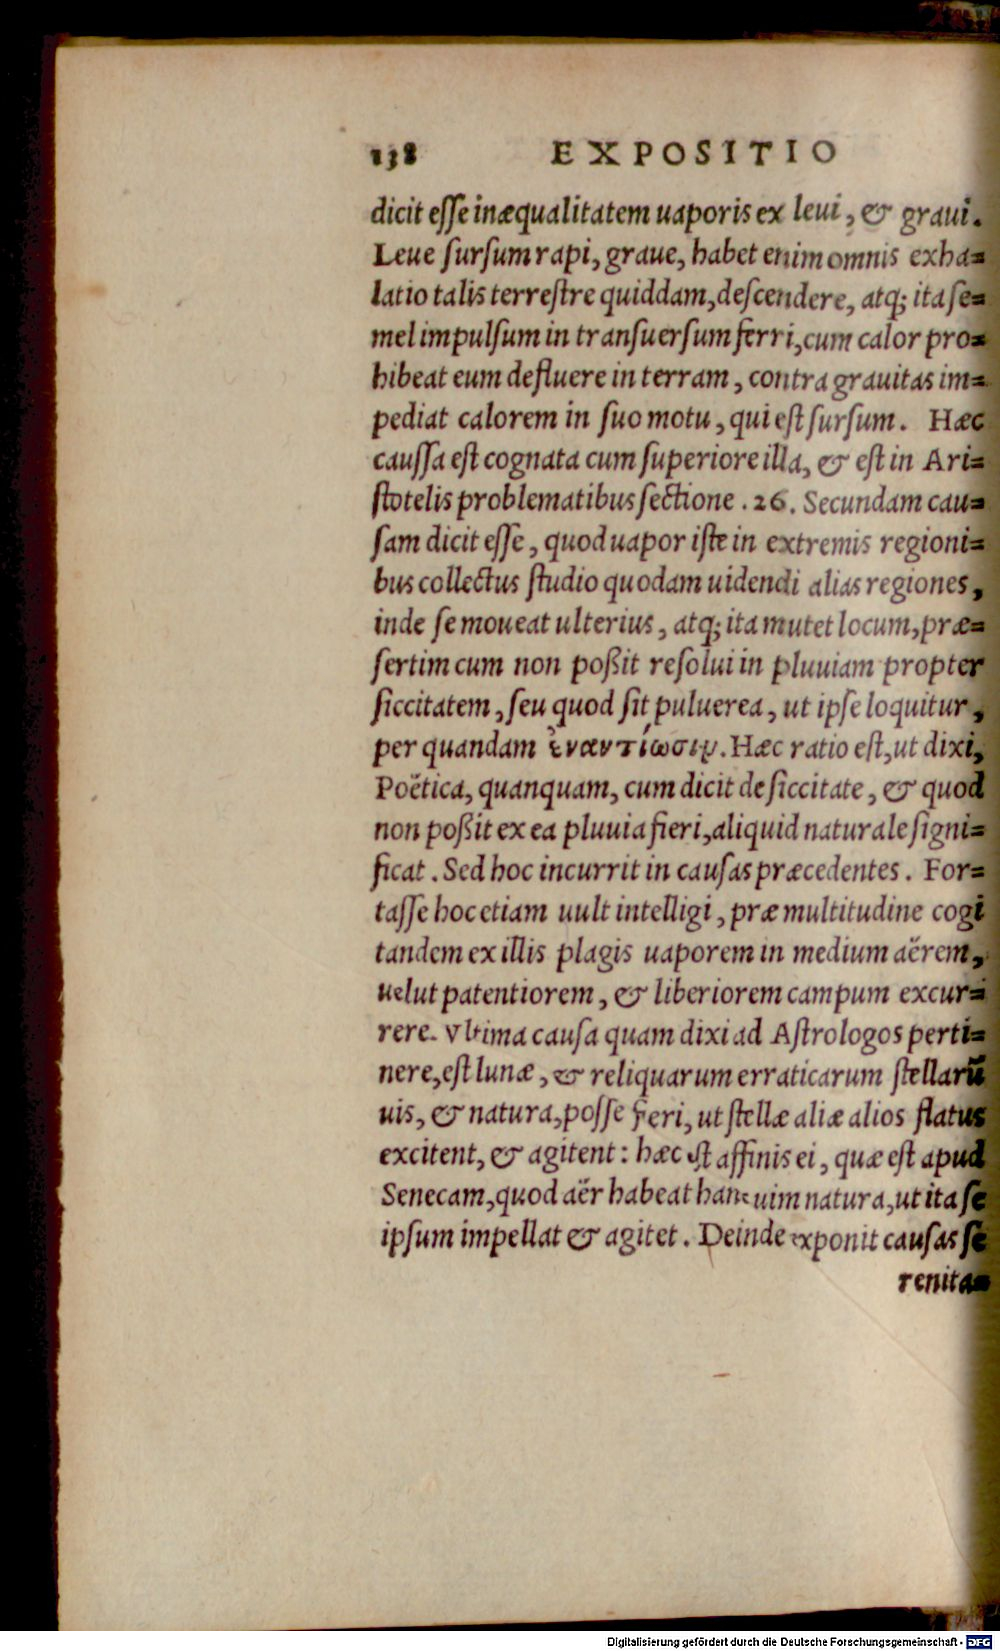 138 EXPOSITIO
dicit eſſe inæqualitatem uaporis ex leui, & graui.
Leue ſurſum rapi, graue, habet enim omnis exha=
latio talis terreſtre quiddam, deſcendere, atq; ita ſe=
mel impulſum in tranſuerſum ferri, cum calor pro=
hibeat eum defluere in terram, contra grauitas im=
pediat calorem in ſuo motu, qui eſt ſurſum. Hæc
cauſſa eſt cognata cum ſuperiore illa, & eſt in Ari=
ſtotelis problematibus ſectione .26. Secundam cau=
ſam dicit eſſe, quod uapor iſte in extremis regioni=
bus collectus ſtudio quodam uidendi alias regiones,
inde ſe moueat ulterius, atq; ita mutet locum, præ=
ſertim cum non poßit reſolui in pluuiam propter
ſiccitatem, ſeu quod ſit puluerea, ut ipſe loquitur,
per quandam ἐναντίωσιν. Hæc ratio eſt, ut dixi,
Poëtica, quanquam, cum dicit de ſiccitate, & quod
non poßit ex ea pluuia fieri, aliquid naturale ſigni=
ficat. Sed hoc incurrit in cauſas præcedentes. For=
taſſe hoc etiam uult intelligi, præ multitudine cogi
tandem ex illis plagis uaporem in medium aërem,
uelut patentiorem, & liberiorem campum excur=
rere. Vltima cauſa quam dixi ad Aſtrologos perti=
nere, eſt lunæ, & reliquarum erraticarum ſtellarū
uis, & natura, poſſe fieri, ut ſtellæ aliæ alios flatus
excitent, & agitent: hæc eſt affinis ei, quæ eſt apud
Senecam, quod aër habeat hanc uim natura, ut ita ſe
ipſum impellat & agitet. Deinde exponit cauſas ſe
renita=
Digitalisierung gefördert durch die Deutsche Forschungsgemeinschaft - DFG